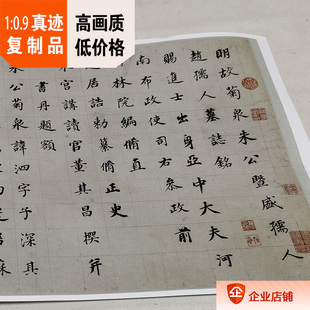 1:0.9真迹
复制品
高画质
低价格
明故菊泉朱公暨盛孺人
趙孺人墓誌銘
賜進士出身亞中大夫河
南布政使司右參政前
林院編脩直
居誥勑纂脩正史
官講讀官董其昌撰并
書丹題額
公菊泉諱泗字子深其
企业店铺